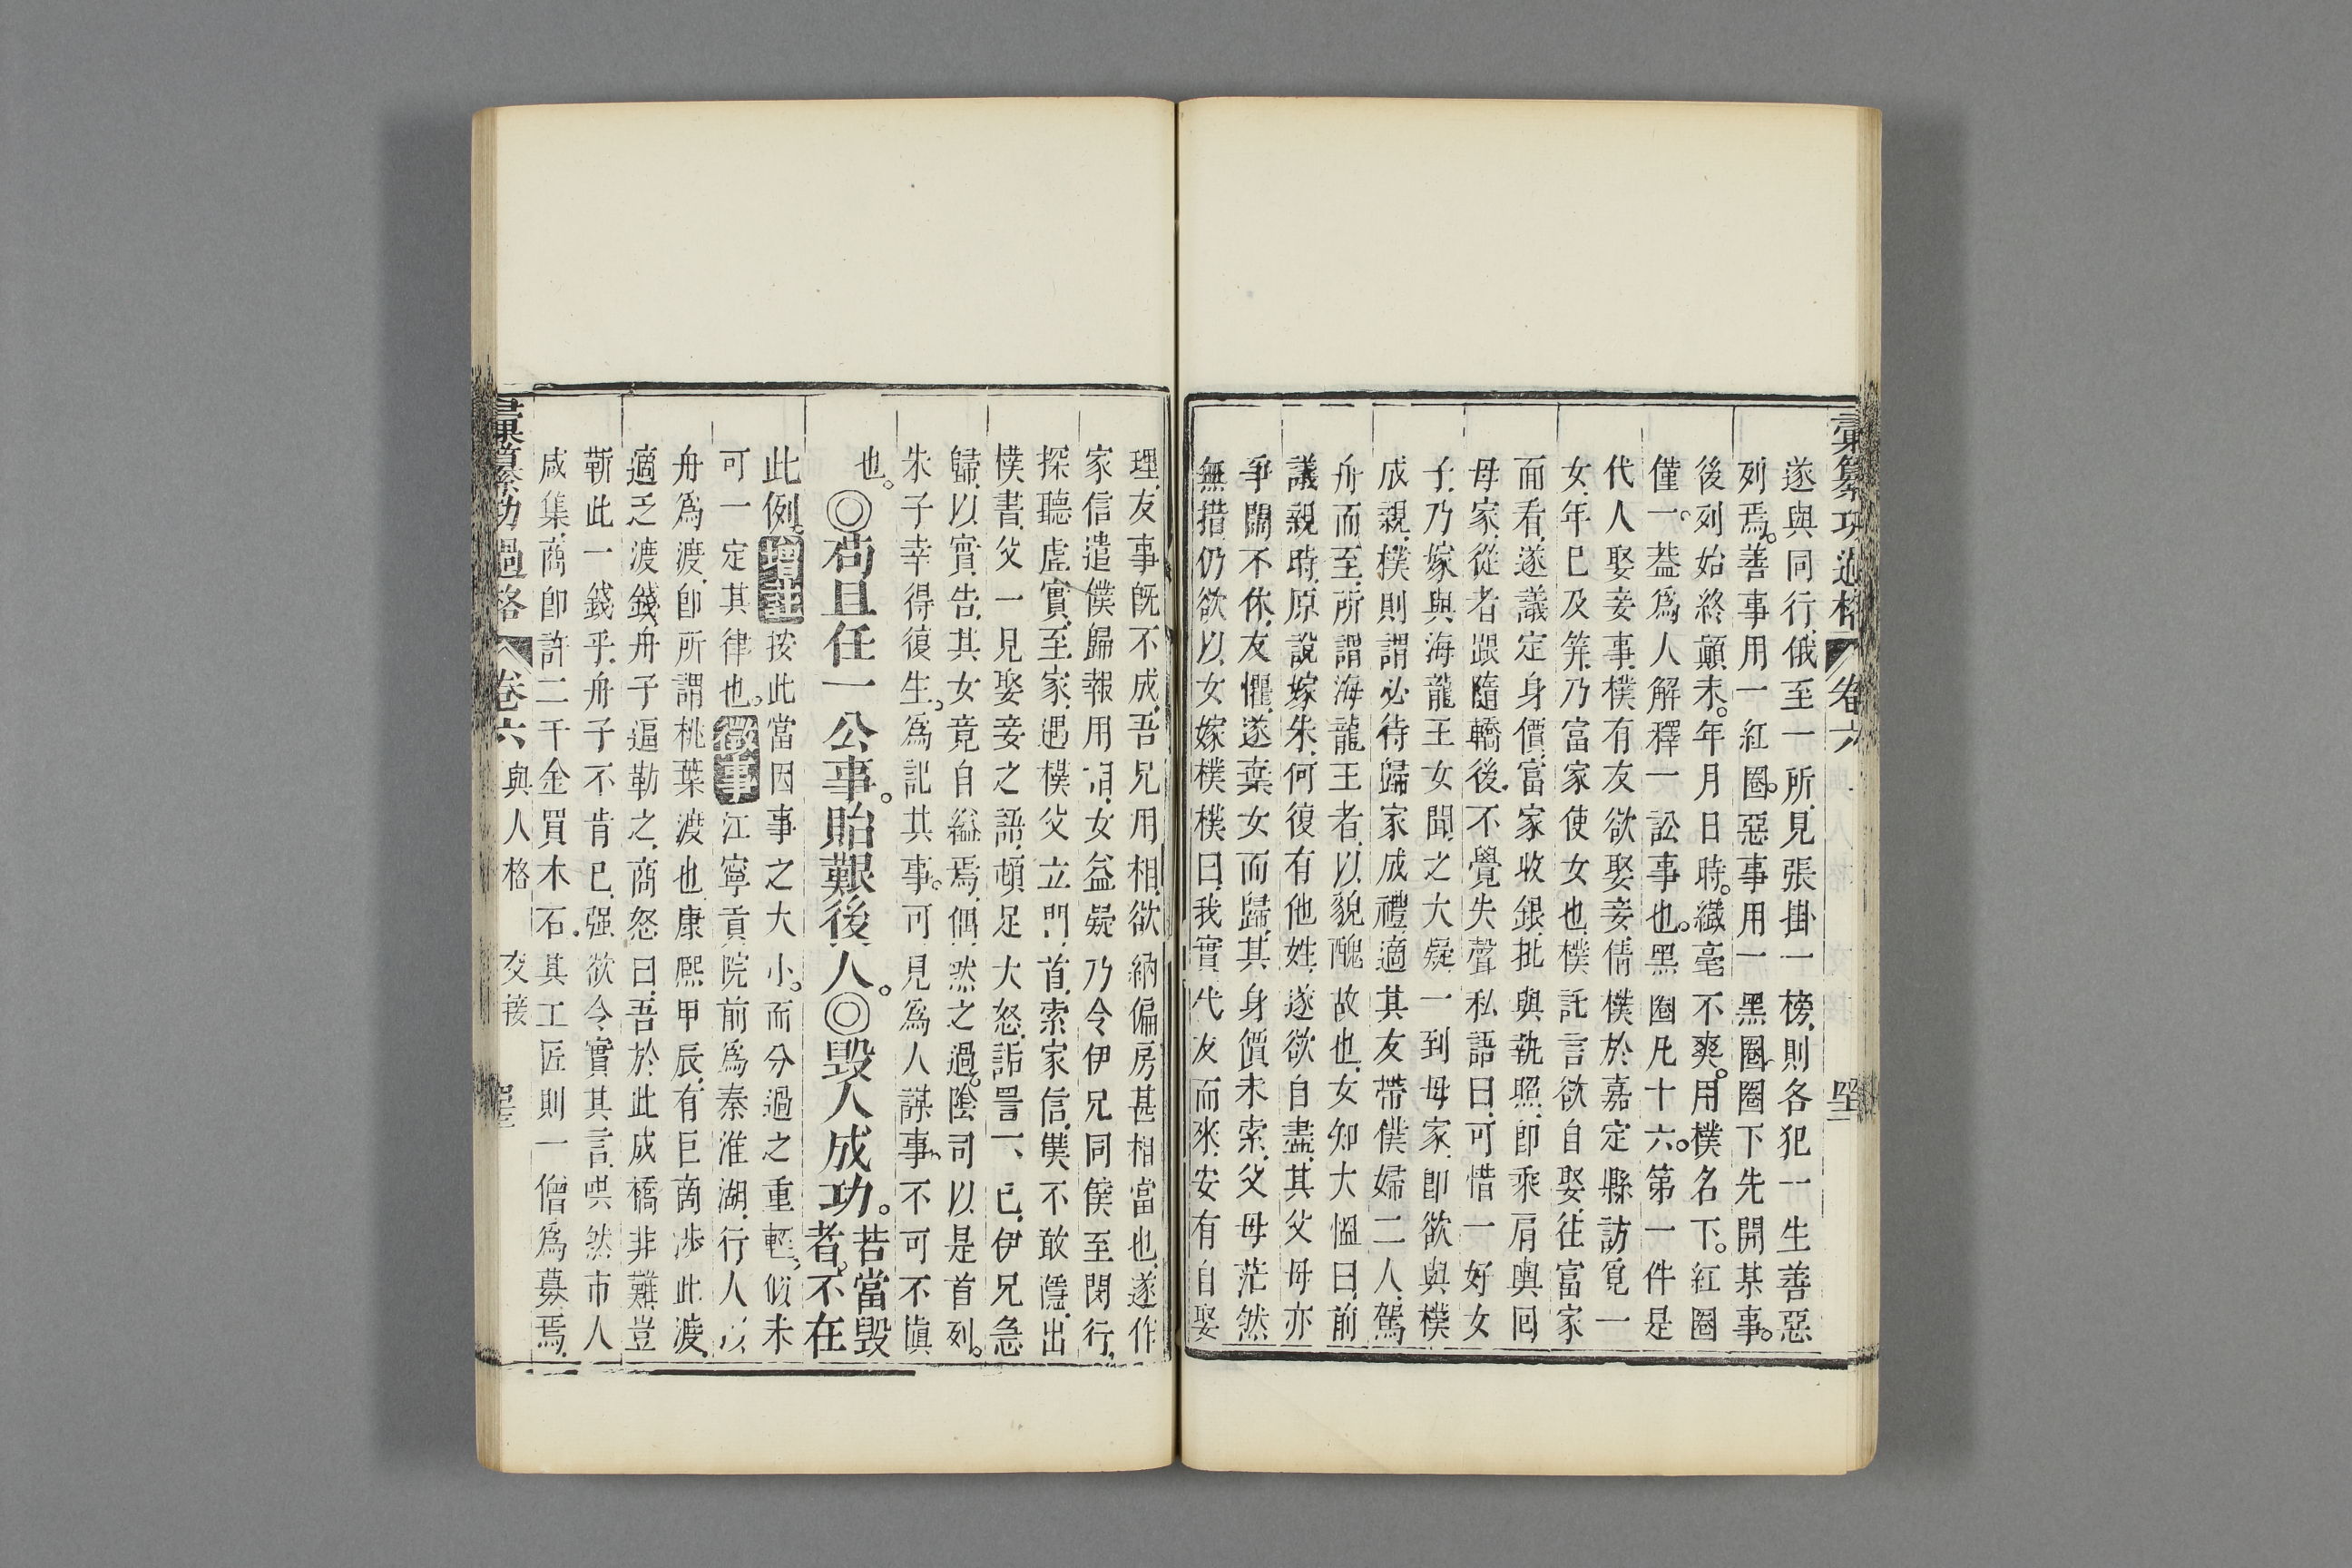 彙纂功過格 卷六
遂與同行俄至一所見張掛一榜則各犯一生善惡
列焉善事用一紅圈惡事用一黑圈圈下先開某事
後列始終顛末年月日時纖毫不爽用樸名下紅圈
僅一葢爲人解釋一訟事也黑圈凡十六第一件是
代人娶妾事樸有友欲娶妾倩樸於嘉定縣訪覓一
女年已及筓乃富家使女也樸託言欲自娶往富家
面看遂議定身價富家收銀批與執照卽乘肩輿回
母家從者跟隨轎後不覺失聲私語曰可惜一好女
子乃嫁與海龍王女聞之大疑一到母家卽欲與樸
成親樸則謂必待歸家成禮適其友帶僕婦二人駕
舟而至所謂海龍王者以貌醜故也女知大慍曰前
議親時原說嫁朱何復有他姓遂欲自盡其父母亦
爭鬧不休友懼遂棄女而歸其身價未索父母茫然
無措仍欲以女嫁樸樸曰我實代友而來安有自娶
理友事旣不成吾兄用相欲納偏房甚相當也遂作
家信遣僕歸報用相女益疑乃令伊兄同僕至閔行
探聽虛實至家遇樸父立門首索家信僕不敢隱出
樸書父一見娶妾之語頓足大怒詬詈不已伊兄急
歸以實告其女竟自縊焉偶然之過陰司以是首列
朱子幸得復生爲記其事可見爲人謀事不可不愼
也◎苟且任一公事貽艱後人◎毀人成功若當毀者不在
此例增註按此當因事之大小而分過之重輕似未
可一定其律也徵事江寧貢院前爲秦淮湖行人以
舟爲渡卽所謂桃葉渡也康熙甲辰有巨商渉此渡
適乏渡錢舟子逼勒之商怒曰吾於此成橋非難豈
靳此一錢乎舟子不肯已强欲令實其言哄然市人
咸集商卽許二千金買木石其工匠則一僧爲募焉
彙纂功過格 卷六 與人格 交接